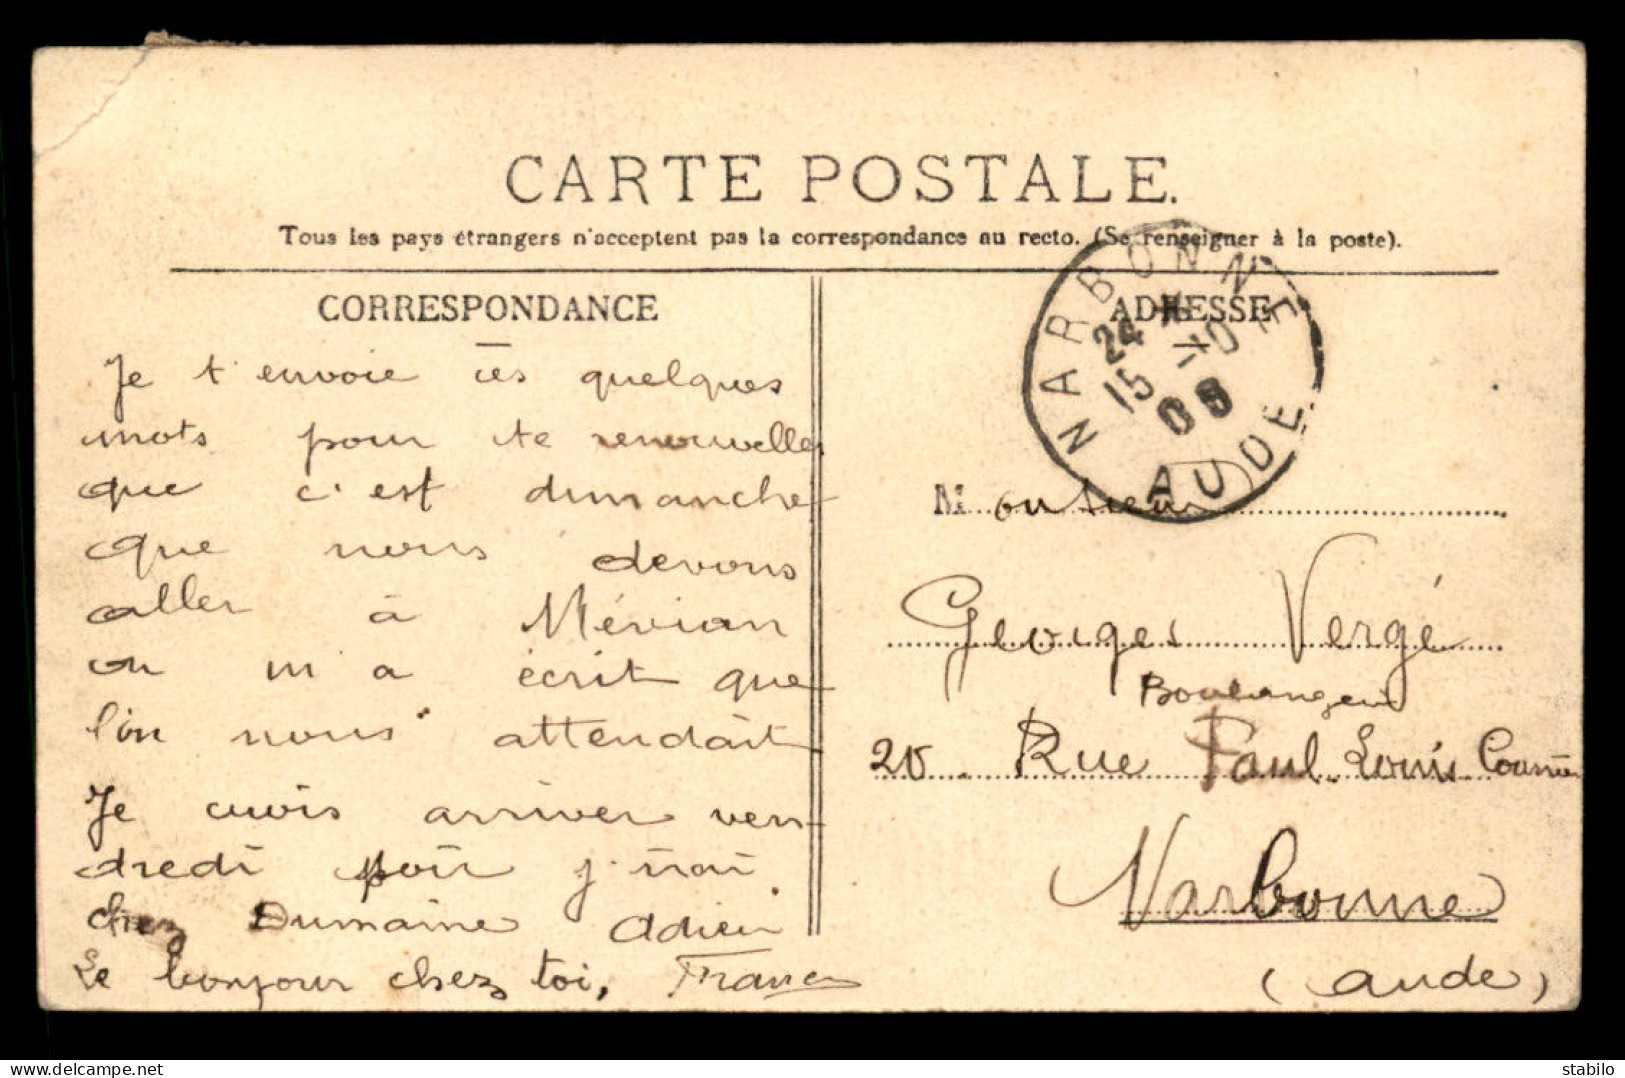 CARTE POSTALE.
Tous les pays étrangers n'acceptent pas la correspondance au recto. (Se renseigner à la poste).
CORRESPONDANCE
Je t'envoie ces quelques
mots pour te renouveller
que c'est dimanche
que nous devons
aller à Mérian
on m'a écrit que
l'on nous attendait
Je crois arriver ven-
dredi soir j'irai
chez Dumaine adieu
Le bonjour chez toi,
ADRESSE
NARBONNE
15 -10
AUDE
Monsieur
Georges Vergé
Boulanger
20 Rue Paul Louis Courrier
Narbonne
(Aude)
delcampe.net
stabilo